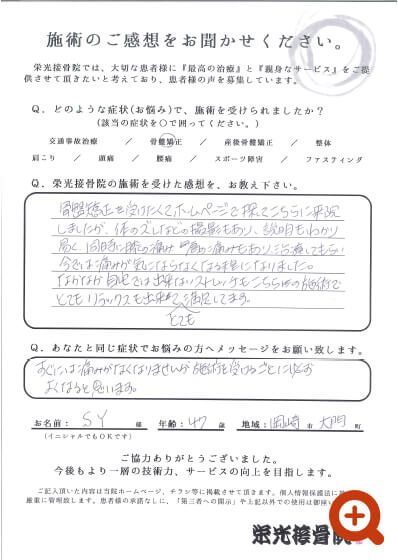 施術のご感想をお聞かせください。
栄光接骨院では、大切な患者様に『最高の治療』と『親身なサービス』をご提
供させて頂きたいと考えており、患者様の声を募集しています。
Q. どのような症状(お悩み)で、施術を受けられましたか？
(該当の症状を○で囲ってください。)
交通事故治療 ／ 骨髄矯正 ／ 産後骨髄矯正 ／ 整体
肩こり ／ 頭痛 ／ 腰痛 ／ スポーツ障害 ／ ファスティング
Q. 栄光接骨院の施術を受けた感想を、お教え下さい。
骨盤矯正を受けたくてホームページで探してこちらに来院
しましたが、体のズレなどの撮影もあり、説明もわかり
易く、同時に膝の痛み 肩の痛みもあり、治療してもらい
今では痛みが気にならなくなる程になりました。
なかなか自宅では出来ないストレッチもこちらの施術で
とてもリラックスも出来て満足してます。
とても
Q. あなたと同じ症状でお悩みの方へメッセージをお願い致します。
すぐには痛みがなくなりませんが施術を受けるごとに必ず
よくなると思います。
お名前： SY 様 年齢： 47 歳 地域： 岡崎 市 大門 町
(イニシャルでもOKです)
ご協力ありがとうございました。
今後もより一層の技術力、サービスの向上を目指します。
ご記入頂いた内容は当院ホームページ、チラシ等に掲載させて頂きます。個人情報保護法に
厳重に管理致します。患者様の承諾なしに、「第三者への開示」や上記以外での使用は御座い
栄光接骨院